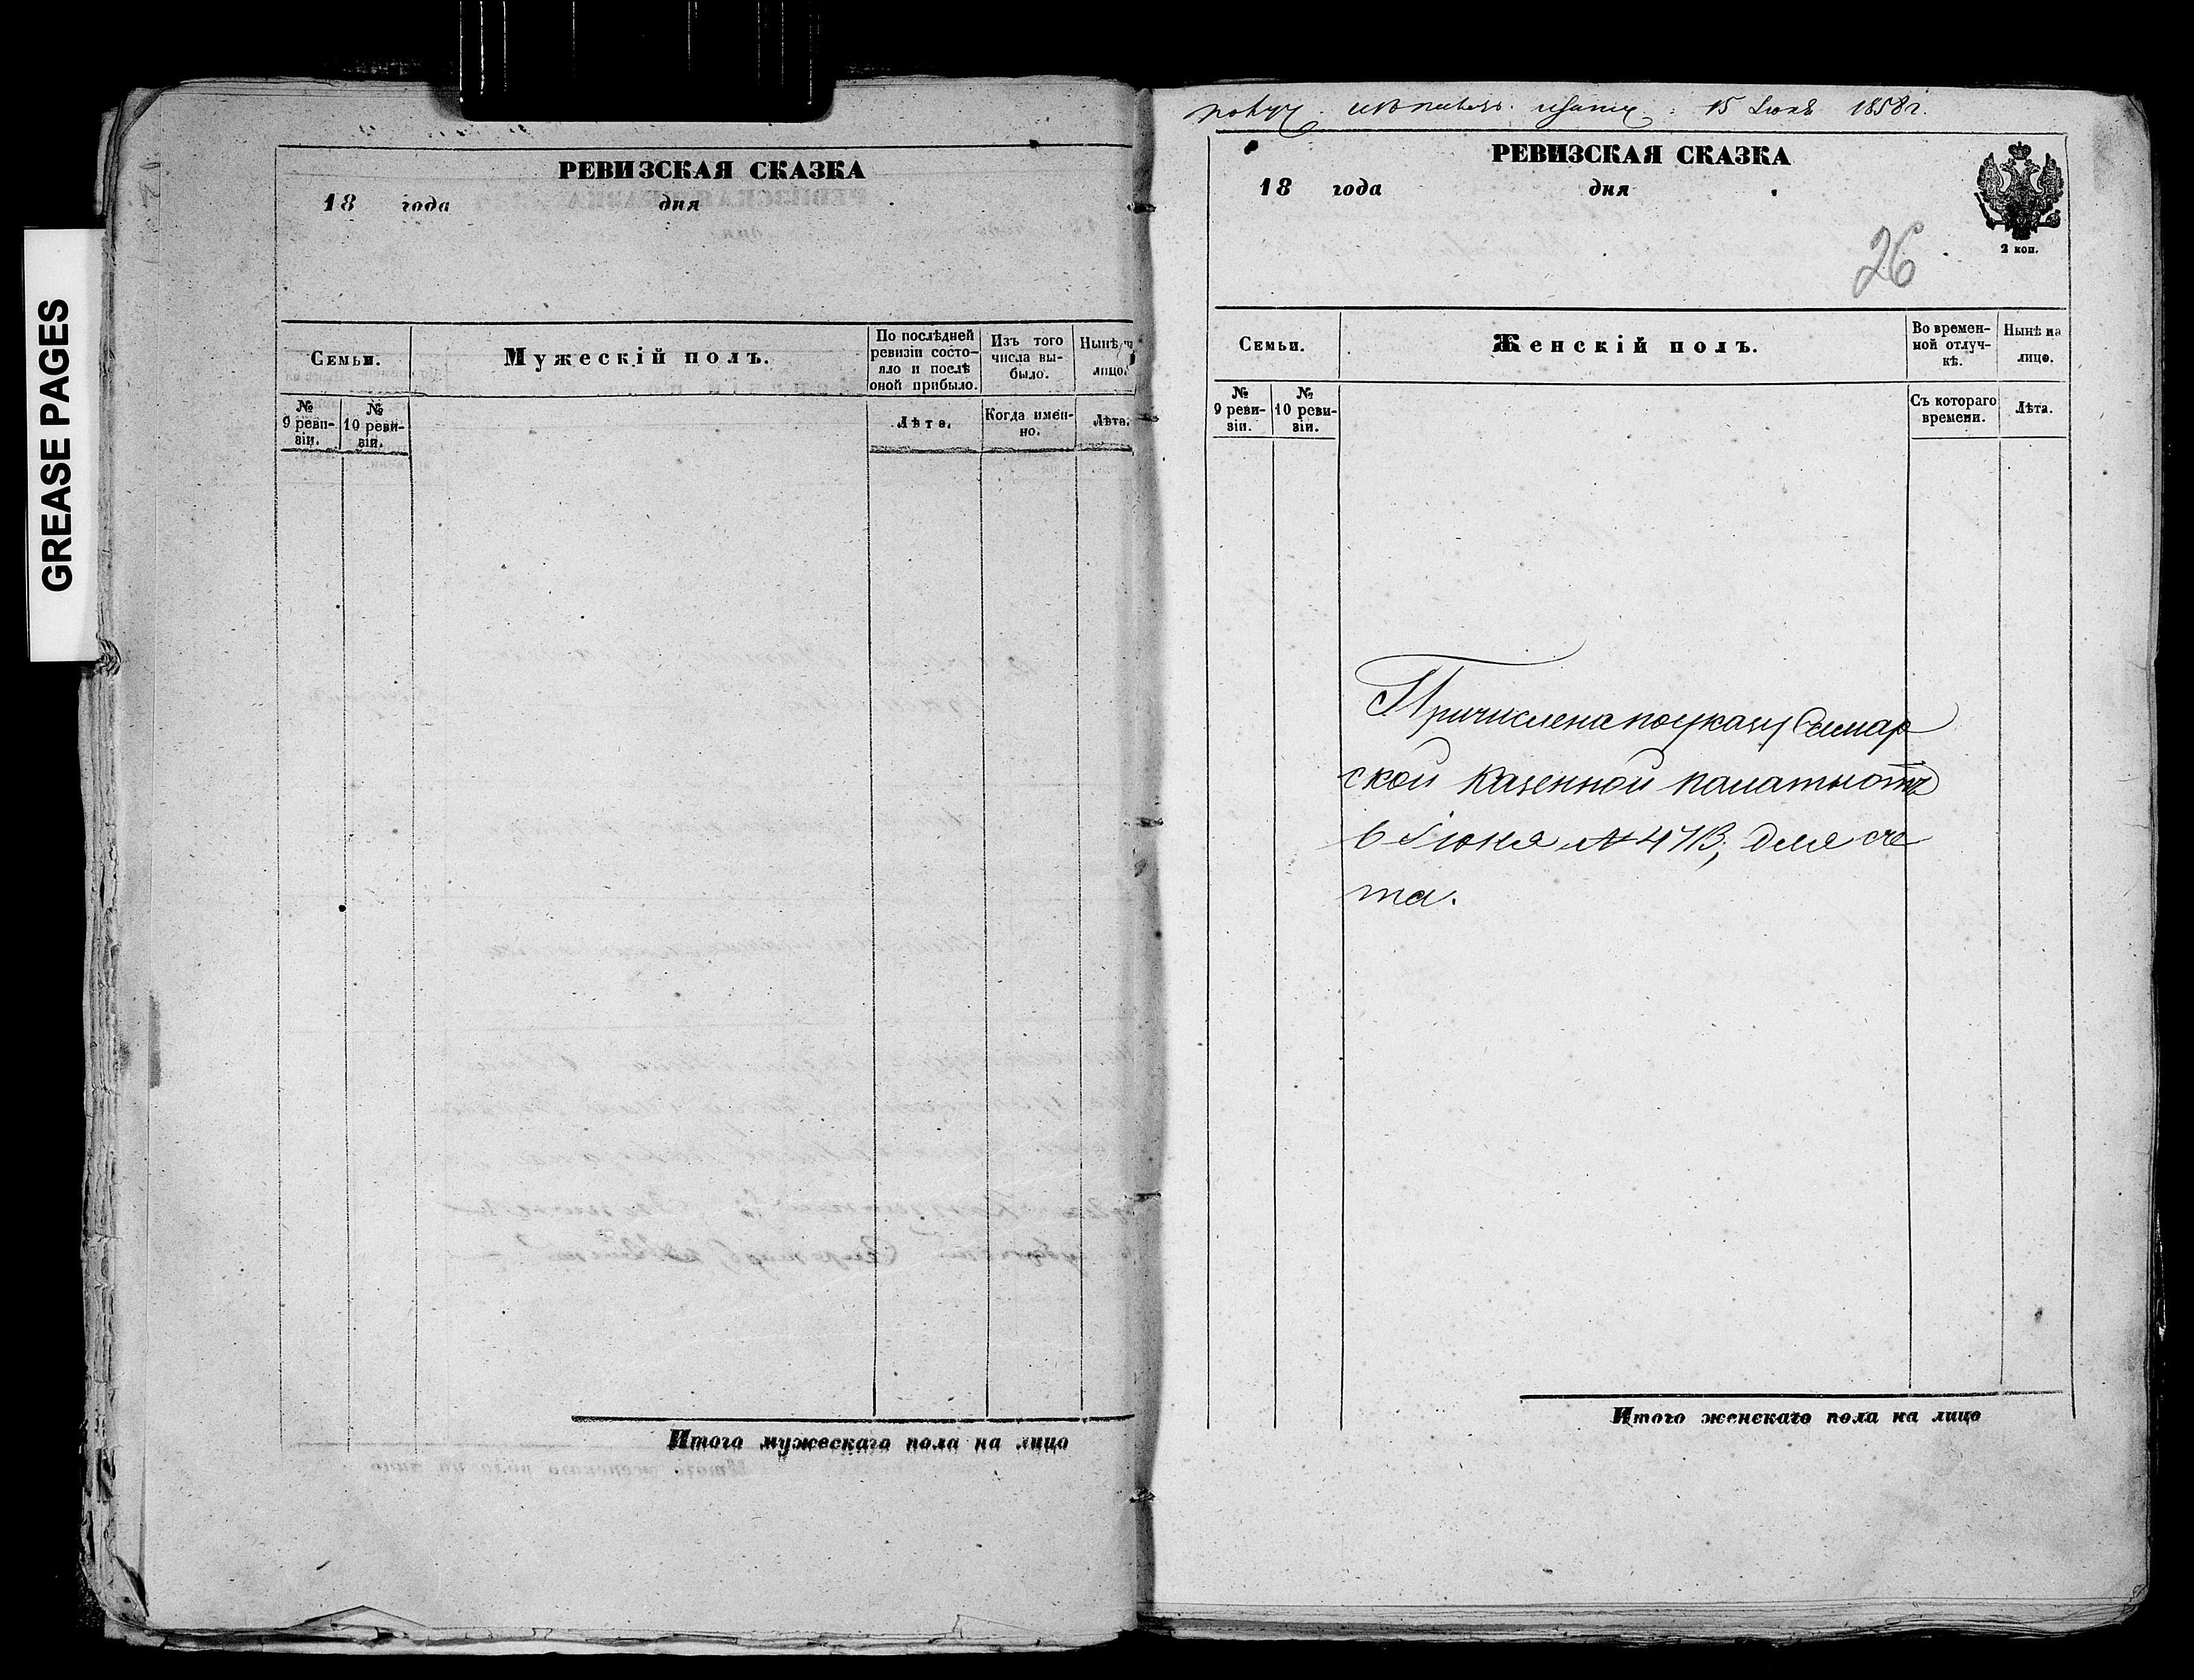 GREASE PAGES
РЕВИЗСКАЯ СКАЗКА
18 года дня
Семьи.
Мужескій полъ.
По послѣдней
ревизіи состо-
яло и послѣ
оной прибыло.
Изъ того
числа вы-
было.
Нынѣ на
лицо.
№
9 реви-
зіи.
№
10 реви-
зіи.
Лѣта.
Когда имен-
но.
Лѣта.
Итого мужескаго пола на лицо
15 Іюня 1858 г.
РЕВИЗСКАЯ СКАЗКА
18 года дня
2 коп.
26
Семьи.
Женскій полъ.
Во времен-
ной отлуч-
кѣ.
Нынѣ на
лицо.
№
9 реви-
зіи.
№
10 реви-
зіи.
Съ котораго
времени.
Лѣта.
Причислена по указу Самар
ской казенной палаты отъ
6 Іюня № 4713, для сче
та.
Итого женскаго пола на лицо